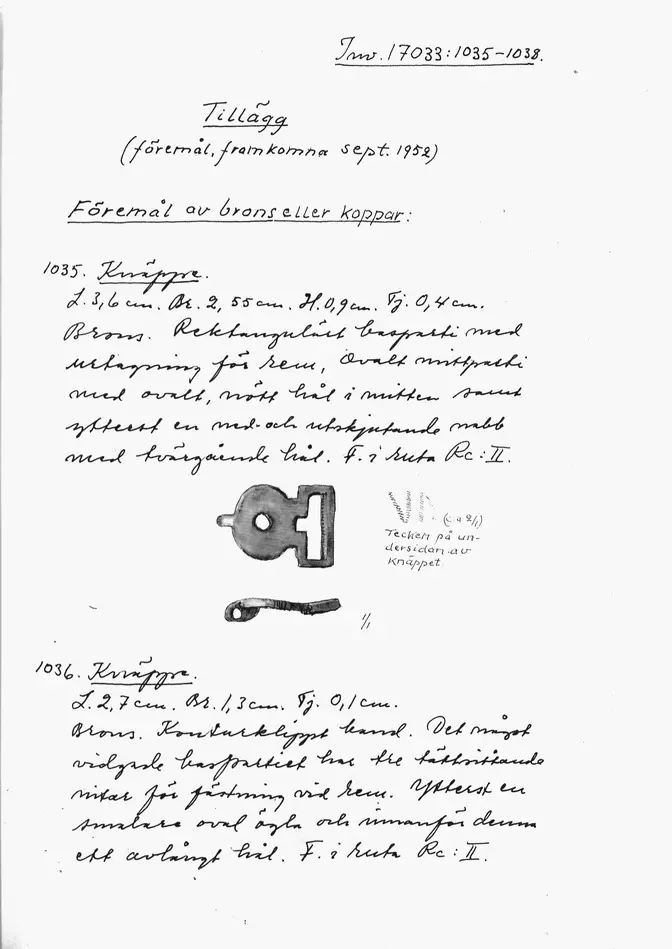 Inv. 17033:1035-1038.
Tillägg
(föremål, framkomna sept. 1952)
Föremål av brons eller koppar:
1035. Knäppe.
L. 3,6 cm. Br. 2,55 cm. H. 0,9 cm. Tj. 0,4 cm.
Brons. Rektangulärt basparti med
urtagning för rem, ovalt mittparti
med ovalt, nött hål i mitten samt
ytterst en ned- och utskjutande nabb
med tvärgående hål. F. i ruta Rc: II.
(c:a 2/1)
Tecken på un-
dersidan av
knäppet.
1/1
1036. Knäppe.
L. 2,7 cm. Br. 1,3 cm. Tj. 0,1 cm.
Brons. Konturklippt band. Det något
vidgade baspartiet har tre tättsittande
nitar för fästning vid rem. Ytterst en
smalare oval ögla och innanför denna
ett avlångt hål. F. i ruta Rc: II.